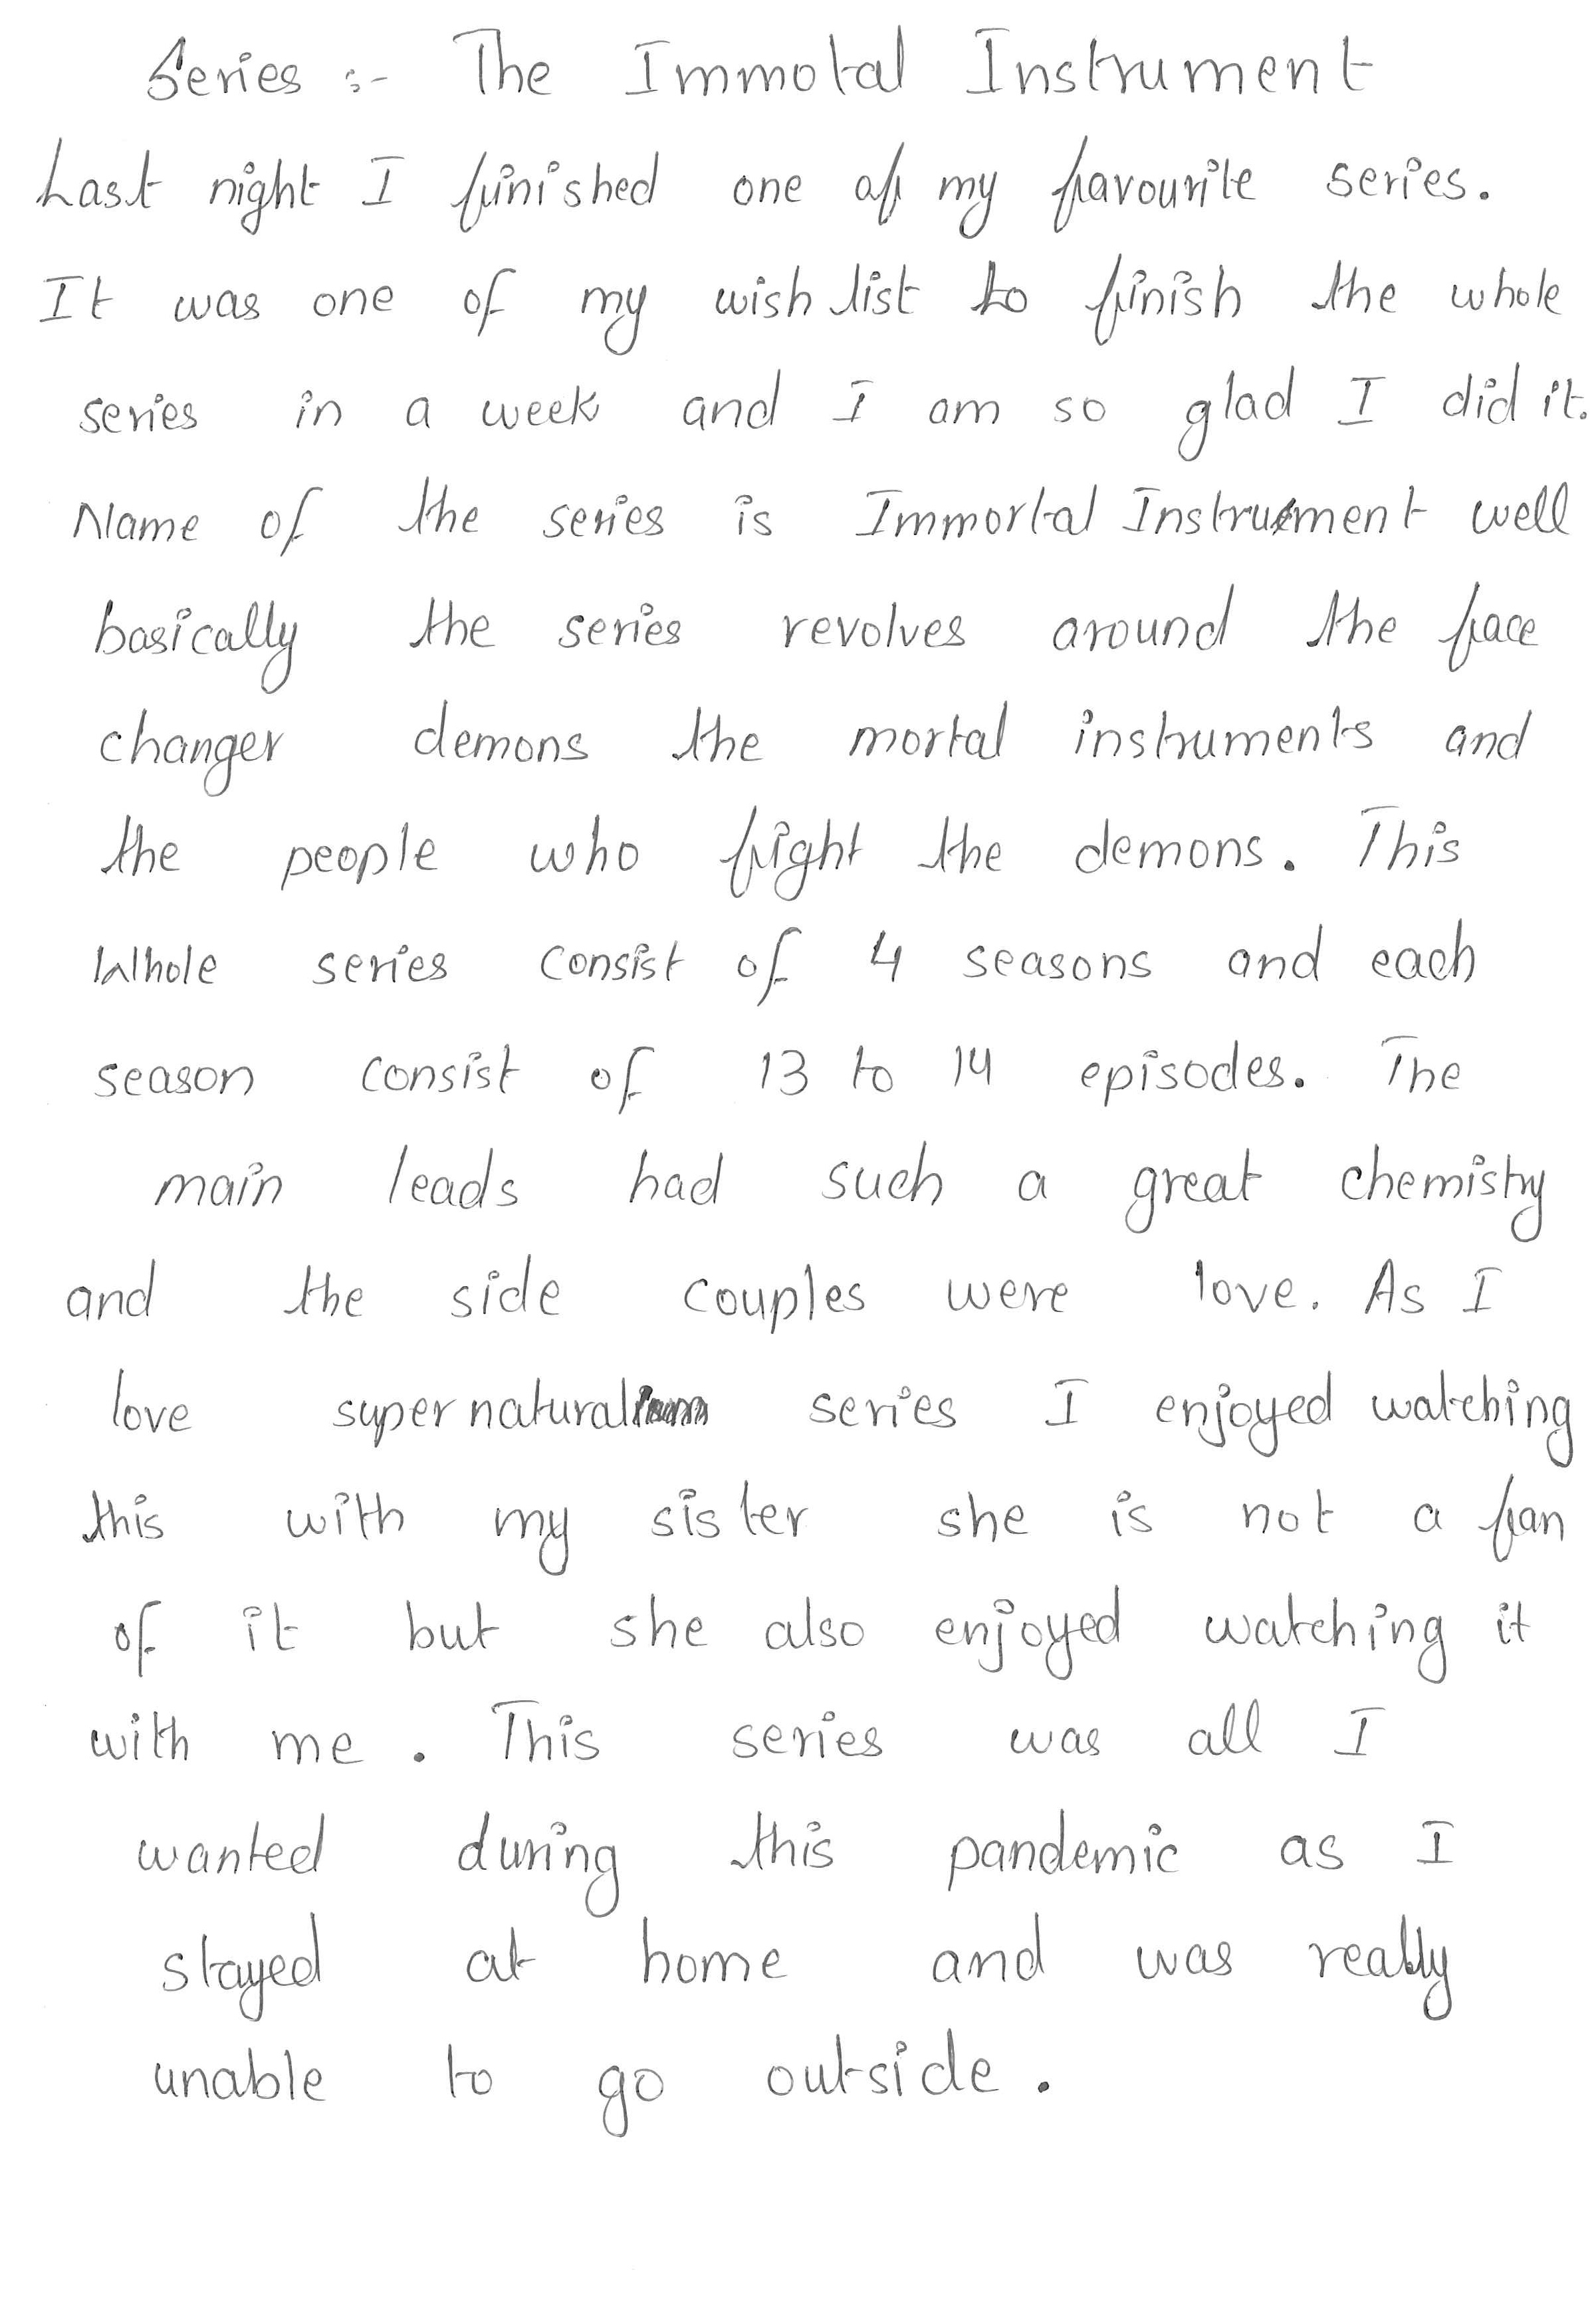 Series :- The Immotal Instrument
Last night I finished one of my favourite series.
It was one of my wish list to finish the whole
series in a week and I am so glad I did it.
Name of the series is Immortal Instrument well
basically the series revolves around the face
changer demons the mortal instruments and
the people who fight the demons. This
Whole series consist of 4 seasons and each
season consist of 13 to 14 episodes. The
main leads had such a great chemistry
and the side couples were love. As I
love supernatural series I enjoyed watching
this with my sister she is not a fan
of it but she also enjoyed watching it
with me. This series was all I
wanted during this pandemic as I
stayed at home and was really
unable to go outside.